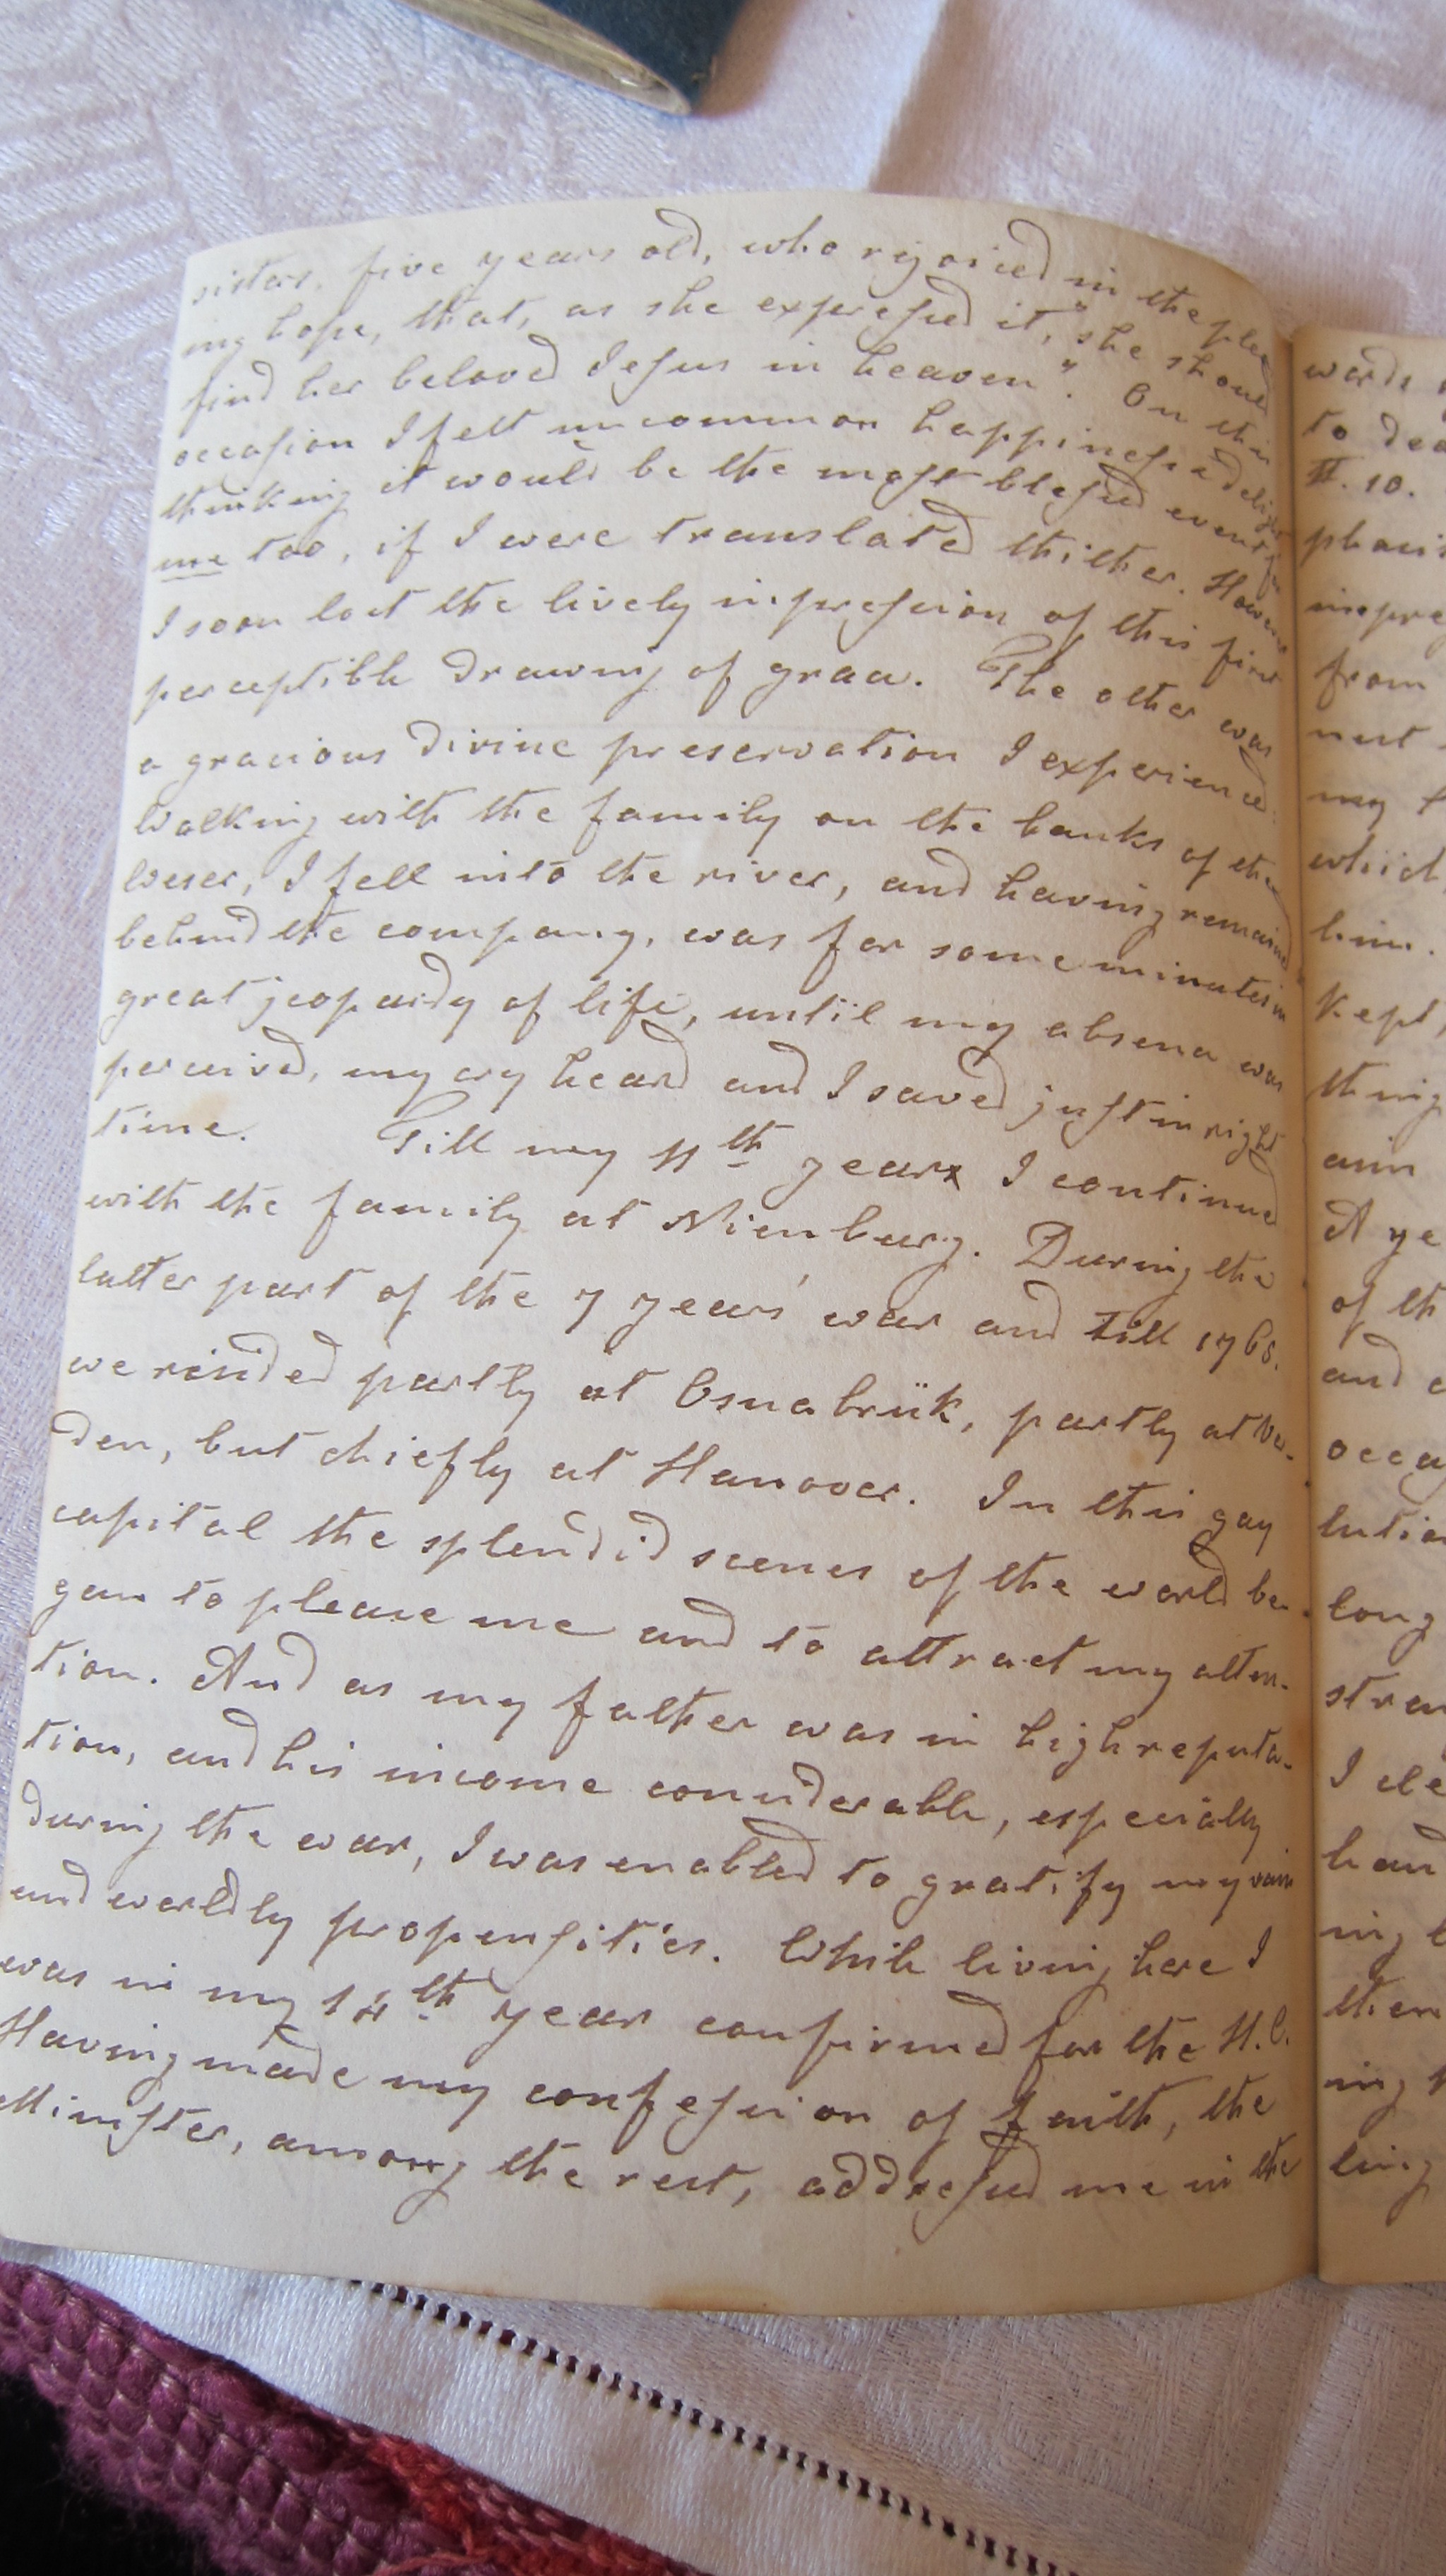 sister, five years old, who rejoiced in the pleas
ing hope, that, as she expressed it, "she should
find her beloved Jesus in heaven". On this
occasion I felt uncommon happiness & delight
thinking it would be the most blessed event for
me too, if I were translated thither. However
I soon lost the lively impression of this first
perceptible drawing of grace. The other was
a gracious divine preservation I experienced.
Walking with the family on the banks of the
Weser, I fell into the river, and having remained
behind the company, was for some minutes in
great jeopardy of life, until my absence was
perceived, my cry heard and I saved just in right
time. Till my 11th year I continued
with the family at Nienburg. During the
latter part of the 7 years' war and till 1765.
we resided partly at Osnabrük, partly at Ver-
den, but chiefly at Hanover. In this gay
capital the splendid scenes of the world be-
gan to please me and to attract my atten-
tion. And as my father was in high reputa-
tion, and his income considerable, especially
during the war, I was enabled to gratify my vain
and worldly propensities. While living here I
was in my 14th year confirmed for the H. C.
Having made my confession of faith, the
Minister, among the rest, addressed me in the
words
to dea
II. 10.
phasis
impre
from
next
my
which
him.
Kept,
thing
ain
A ye
of th
and
occa
lution
long
stran
I
hand
ing
ther
ing
ling